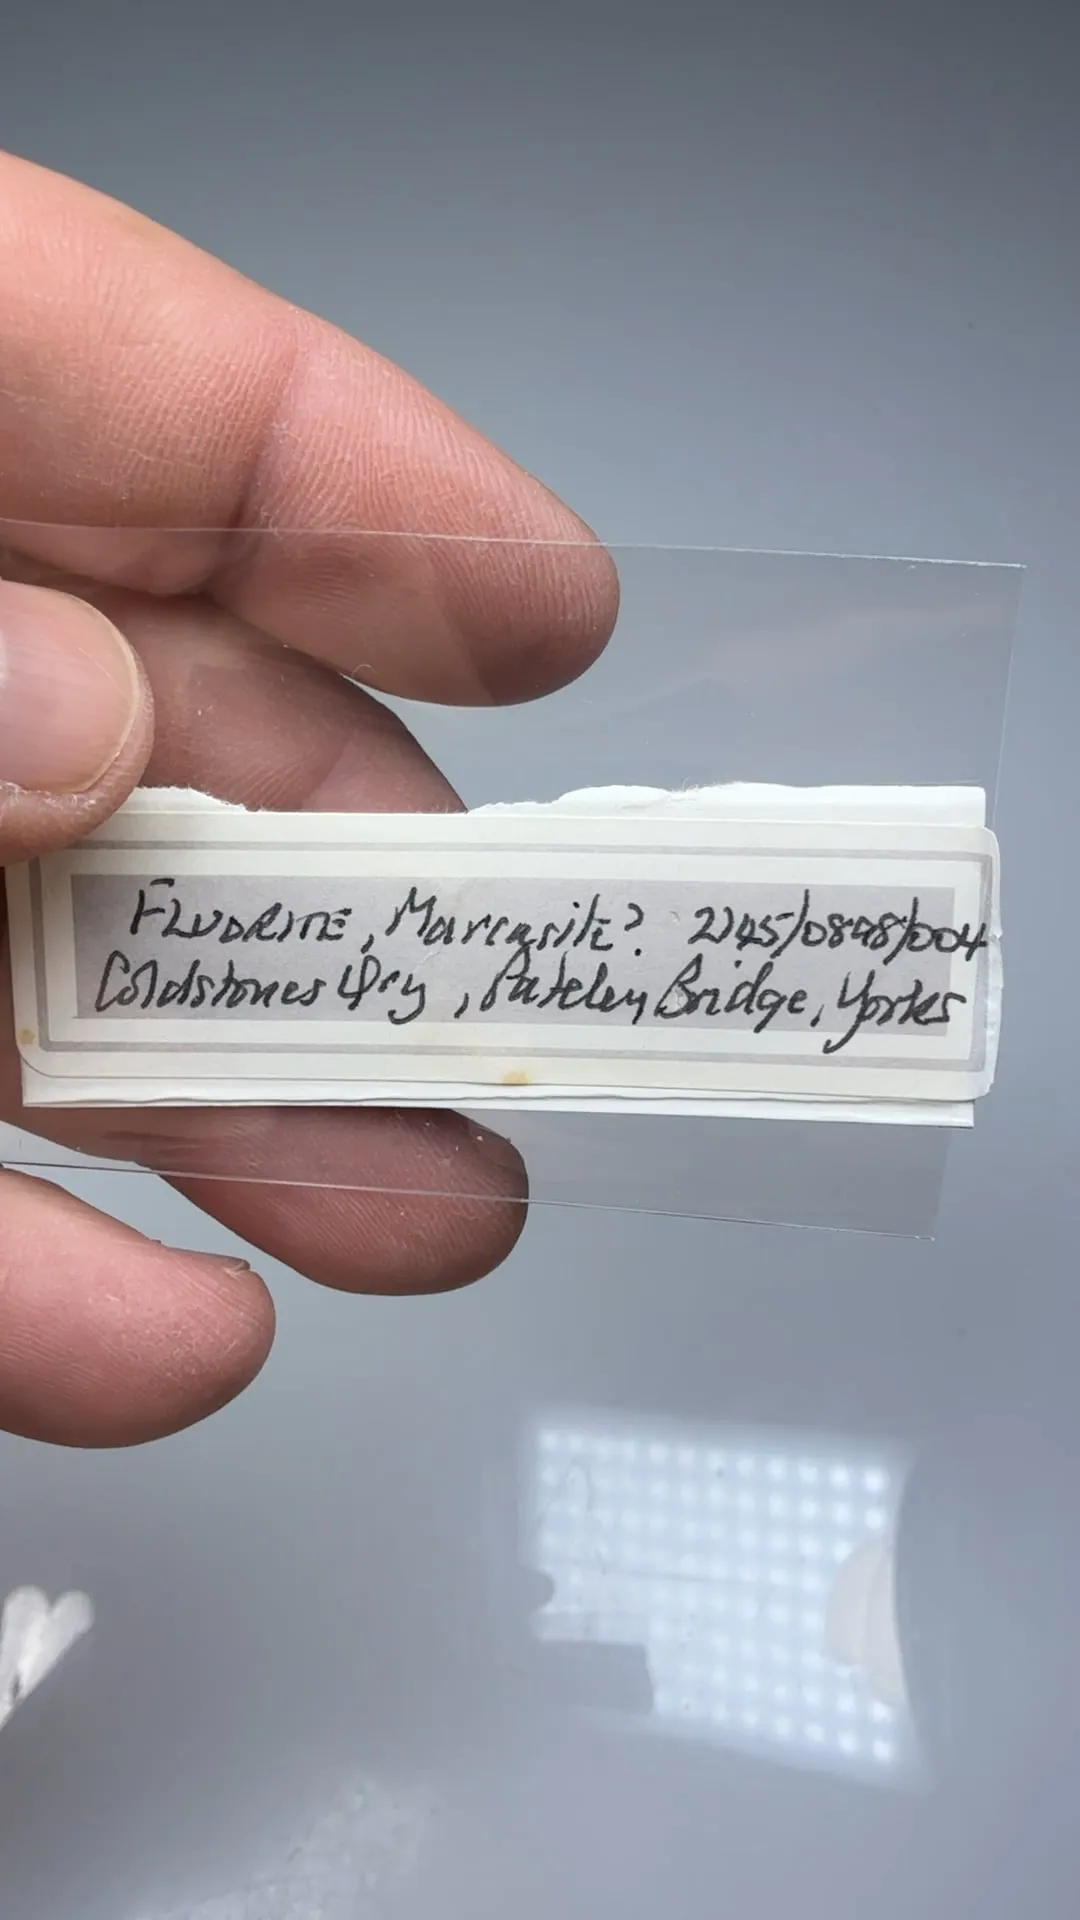 FLUORITE, Marcasite? 2145/0898/004
Coldstones Qry, Pateley Bridge, Yorks